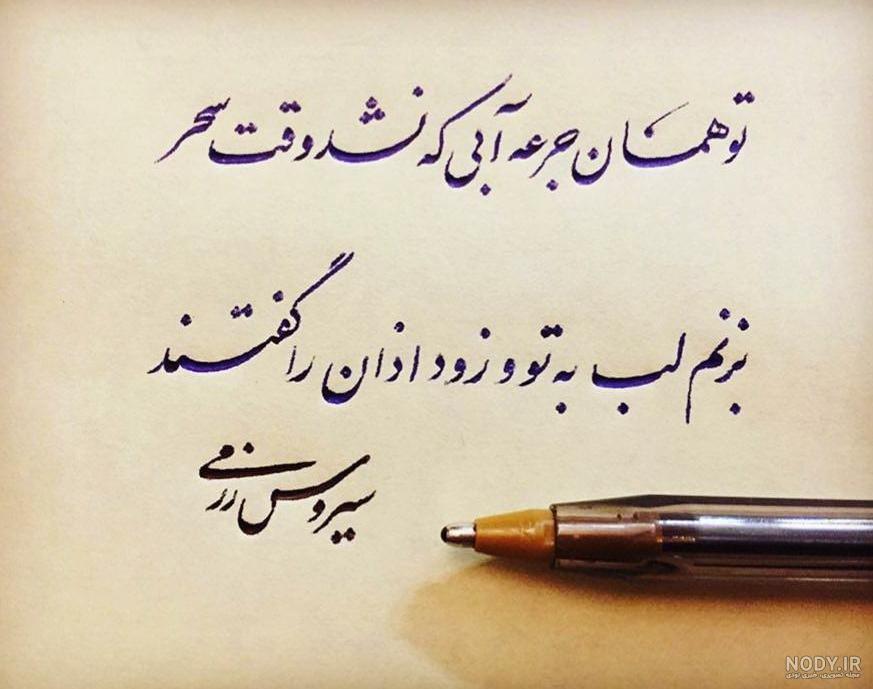 تو همان جرعه آبی که نشد وقت سحر
بزنم لب به تو و زود اذان را گفتند
سیروس رزمی
NODY.IR
مجله تصویری، خبری نودی